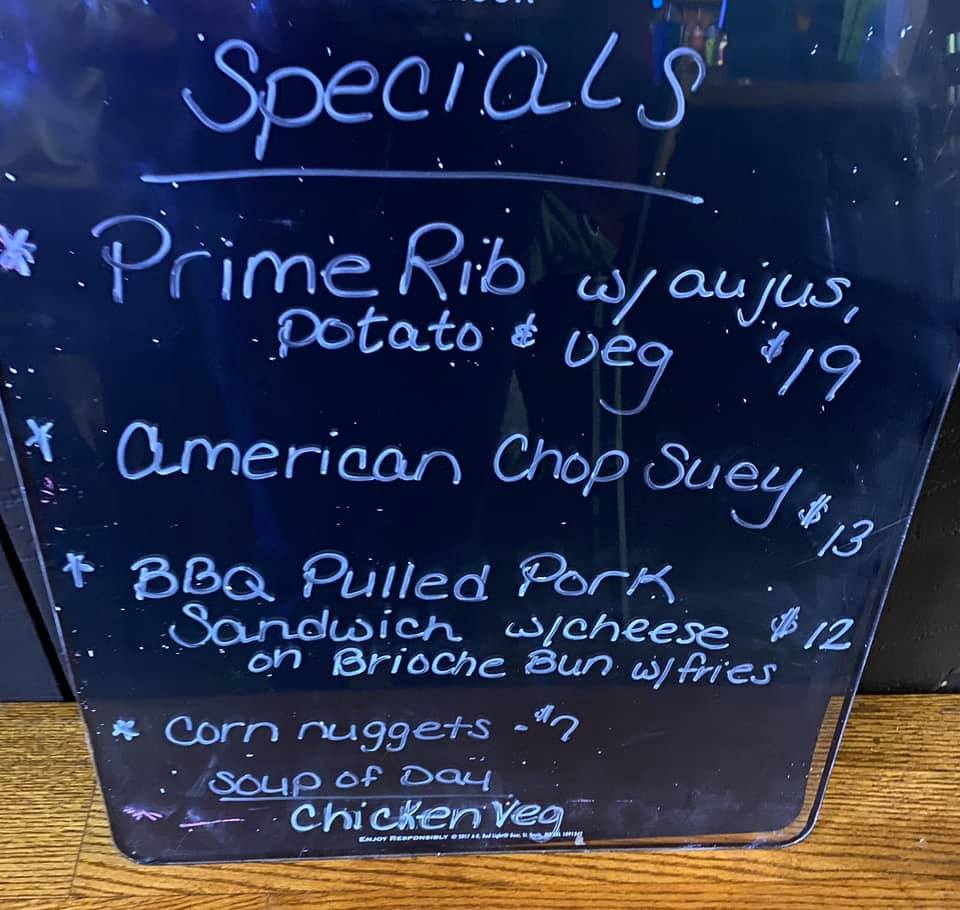 Specials
* Prime Rib w/ aujus,
potato & veg $19
* American Chop Suey
$13
* BBQ Pulled Pork
Sandwich w/cheese $12
on Brioche Bun w/fries
* Corn nuggets - $7
Soup of Day
Chicken Veg
ENJOY RESPONSIBLY